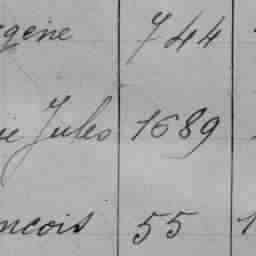 gène 744
ie Jules 1689
ncois 55 1